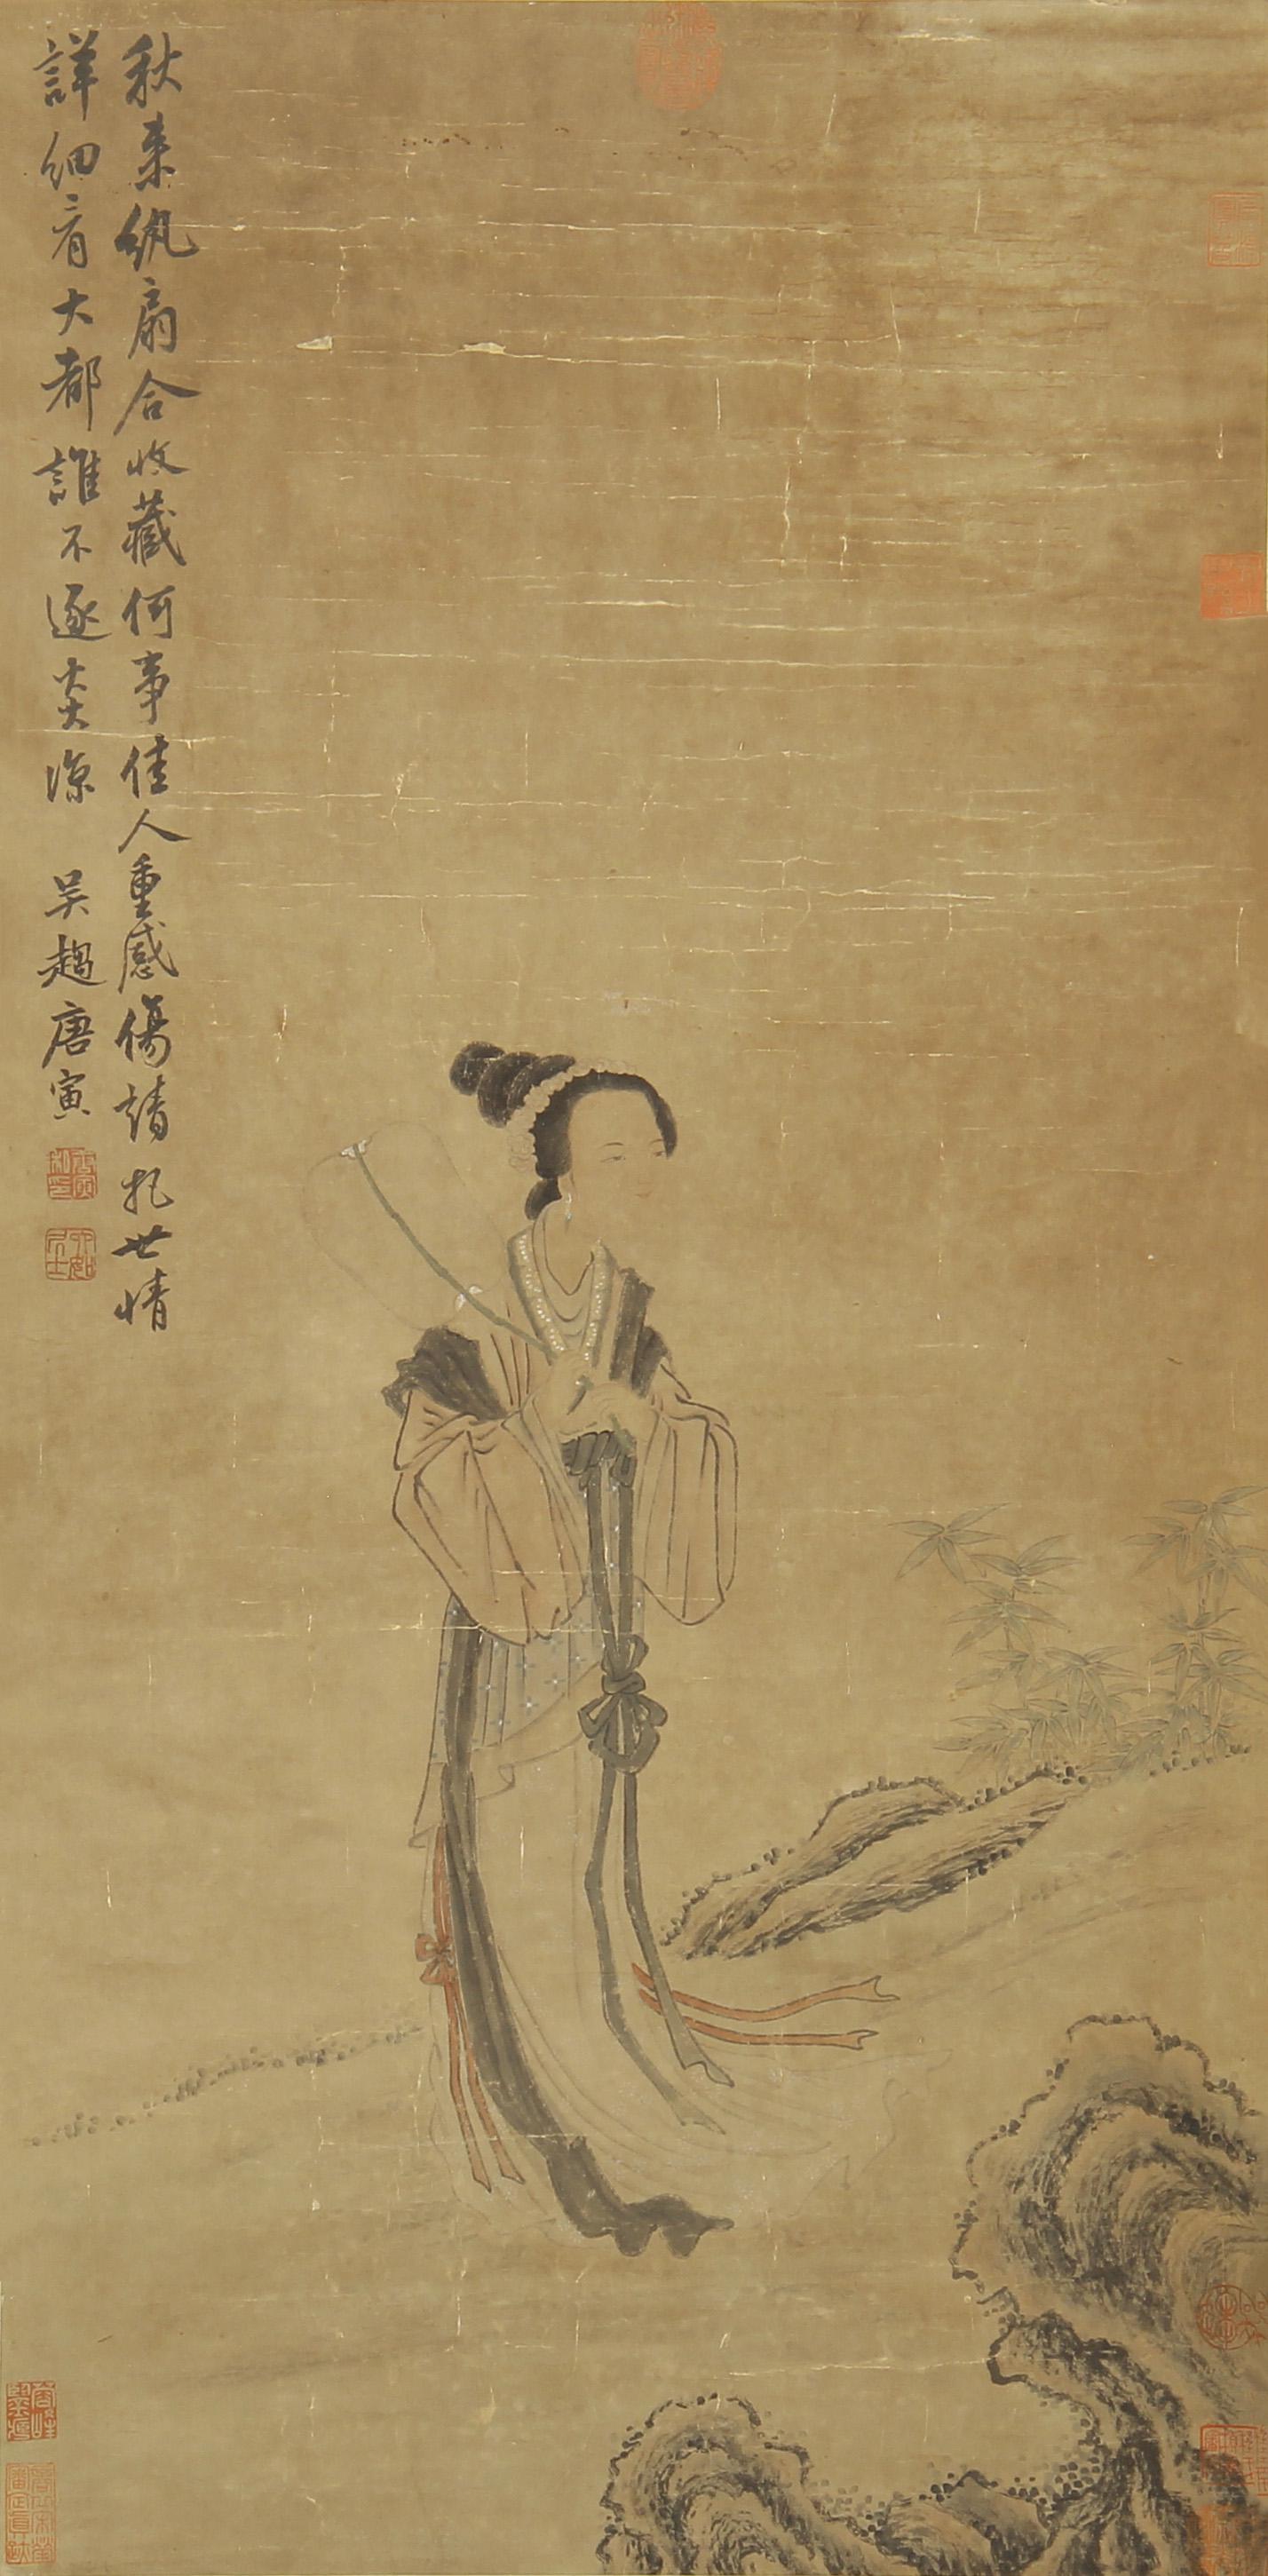 秋来紈扇合收藏何事佳人重感傷請把世情
詳細看大都誰不逐炎涼 吳趨唐寅